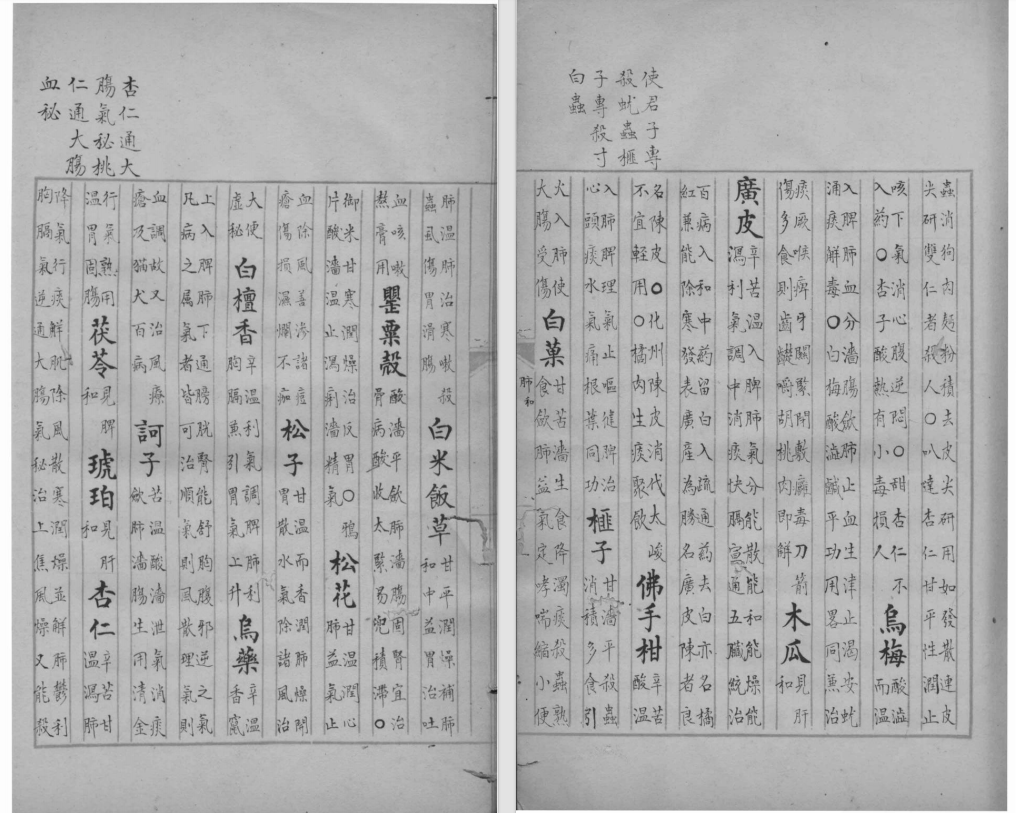 使君子專
殺蚘蟲榧
子專殺寸
白蟲
蟲消狗肉麪粉積去皮尖研用如發散連皮
尖研雙仁者殺人〇叭噠杏仁甘平性潤止
咳下氣消心腹逆悶〇甜杏仁不
入药〇杏子酸熱有小毒損人
烏梅
酸澁
而温
入脾肺血分濇腸歛肺止血生津止渴安蚘
涌痰解毒〇白梅酸澁醎平功用畧同兼治
痰厥喉痺牙關緊閉敷癰毒刀箭
傷多食則齒齼嚼胡桃肉即解
木瓜
見肝
和
廣皮
辛苦温入脾肺氣分能散能和能燥能
瀉利氣調中消痰快膈宣通五臟統治
百病入和中药留白入疏通药去白亦名橘
紅兼能除寒發表廣產為勝名廣皮陳者良
名陳皮〇化州陳皮消伐太峻
不宜輕用〇橘肉生痰聚飲
佛手柑
辛苦
酸温
入肺脾理氣止嘔健脾治
心頭痰水氣痛根葉同功
榧子
甘濇平殺蟲
消積多食引
火入肺使
大腸受傷
白菓
甘苦濇生食降濁痰殺蟲熟
食歛肺益氣定哮喘縮小便
肺和
杏仁通大
腸氣秘桃
仁通大腸
血秘
肺温肺治寒嗽殺
蟲虱傷胃滑腸
白米飯草
甘平潤燥補肺
和中益胃治吐
血咳嗽
熬膏用
罌粟殼
酸濇平歛肺濇腸固腎宜治
骨病酸收太緊易兜積滯〇
御米甘寒潤燥治反胃〇鴉
片酸濇温止瀉痢濇精氣
松花
甘温潤心
肺益氣止
血除風善渗諸痘
瘡傷損濕爛不痂
松子
甘温而香潤肺燥開
胃散水氣除諸風治
大便
虚秘
白檀香
辛温利氣調脾肺利
胸膈兼引胃氣上升
烏藥
辛温
香竄
上入脾肺下通膀胱腎能舒胸腹邪逆之氣
凡病之属氣者皆可治順氣則風散理氣則
血調故又治風療
瘡及猫犬百病
訶子
苦温酸濇泄氣消痰
歛肺濇腸生用清金
行氣熟用
温胃固腸
茯苓
見脾
和
琥珀
見肝
和
杏仁
辛苦甘
温瀉肺
降氣行痰解肌除風散寒潤燥並解肺鬱利
胸膈氣逆通大腸氣秘治上焦風燥又能殺